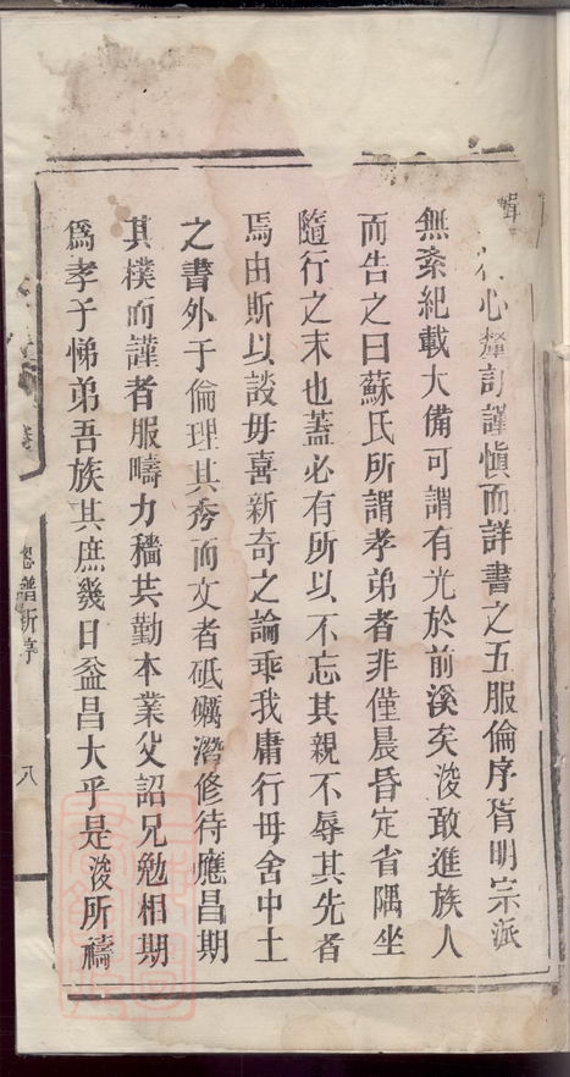 輯 心釐訂謹慎而詳書之五服倫序胥明宗派
無紊紀載大備可謂有光於前溪矣浚敢進族人
而告之曰蘇氏所謂孝弟者非僅晨昏定省隅坐
隨行之末也蓋必有所以不忘其親不辱其先者
焉由斯以談毋喜新奇之論乖我庸行毋舍中土
之書外于倫理其秀而文者砥礪濳修待應昌期
其樸而謹者服疇力穡共勤本業父詔兄勉相期
爲孝子悌弟吾族其庶幾日益昌大乎是浚所禱
譜新序
八